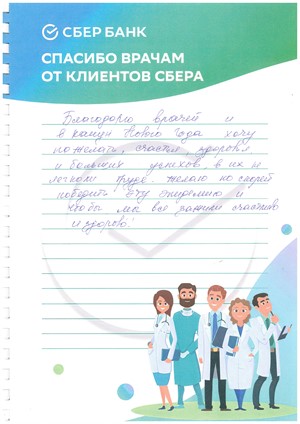 СБЕР БАНК
СПАСИБО ВРАЧАМ
ОТ КЛИЕНТОВ СБЕРА
Благодарю врачей и
в канун Нового года хочу
пожелать, счастья, здоровья
и больших успехов в их не
легком труде. Желаю по скорей
победить эту эпидемию и
чтобы мы все зажили счастливо
и здорово!